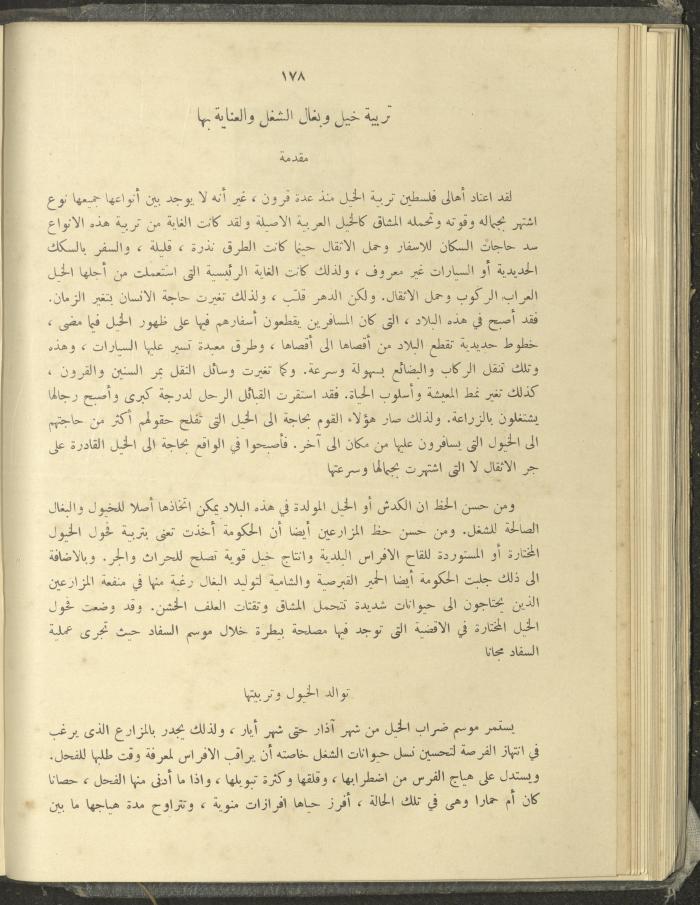 ١٧٨
تربية خيل وبغال الشغل والعناية بها
مقدمة
لقد اعتاد أهالى فلسطين تربية الخيل منذ عدة قرون ، غير أنه لا يوجد بين أنواعها جميعها نوع
اشتهر بجماله وقوته وتحمله المشاق كالخيل العربية الاصيلة ولقد كانت الغاية من تربية هذه الانواع
سد حاجات السكان للاسفار وحمل الاثقال حينما كانت الطرق نذرة ، قليلة ، والسفر بالسكك
الحديدية أو السيارات غير معروف ، ولذلك كانت الغاية الرئيسية التى استعملت من أجلها الخيل
العراب الركوب وحمل الاثقال. ولكن الدهر قلّب ، ولذلك تغيرت حاجة الانسان بتغير الزمان.
فقد أصبح في هذه البلاد ، التى كان المسافرين يقطعون أسفارهم فيها على ظهور الخيل فيما مضى ،
خطوط حديدية تقطع البلاد من أقصاها الى أقصاها ، وطرق معبدة تسير عليها السيارات ، وهذه
وتلك تنقل الركاب والبضائع بسهولة وسرعة. وكما تغيرت وسائل النقل بمر السنين والقرون ،
كذلك تغير نمط المعيشة وأسلوب الحياة. فقد استقرت القبائل الرحل لدرجة كبرى وأصبح رجالها
يشتغلون بالزراعة. ولذلك صار هؤلاء القوم بحاجة الى الخيل التى تفلح حقولهم أكثر من حاجتهم
الى الخيول التى يسافرون عليها من مكان الى آخر. فأصبحوا في الواقع بحاجة الى الخيل القادرة على
جر الاثقال لا التى اشتهرت بجمالها وسرعتها
ومن حسن الحظ ان الكدش أو الخيل المولدة في هذه البلاد يمكن اتخاذها أصلا للخيول والبغال
الصالحة للشغل. ومن حسن حظ المزارعين أيضا أن الحكومة أخذت تعنى بتربية فحول الخيول
المختارة أو المستوردة للقاح الافراس البلدية وانتاج خيل قوية تصلح للحراث والجر. وبالاضافة
الى ذلك جلبت الحكومة أيضا الحمير القبرصية والشامية لتوليد البغال رغبة منها في منفعة المزارعين
الذين يحتاجون الى حيوانات شديدة تتحمل المشاق وتقتات العلف الخشن. وقد وضعت فحول
الخيل المختارة في الاقضية التى توجد فيها مصلحة بيطرة خلال موسم السفاد حيث تجرى عملية
السفاد مجانا
توالد الخيول وتربيتها
يستمر موسم ضراب الخيل من شهر آذار حتى شهر أيار ، ولذلك يجدر بالمزارع الذى يرغب
في انتهاز الفرصة لتحسين نسل حيوانات الشغل خاصته أن يراقب الافراس لمعرفة وقت طلبها للفحل.
ويستدل على هياج الفرس من اضطرابها ، وقلقها وكثرة تبويلها ، واذا ما أدنى منها الفحل ، حصانا
كان أم حمارا وهى في تلك الحالة ، أفرز حياها افرازات منوية ، وتتراوح مدة هياجها ما بين